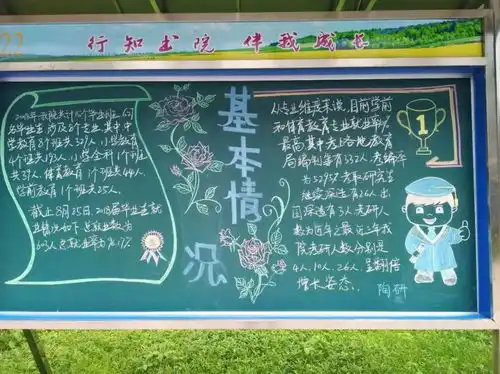 22
行知书院 伴我成长
基本情况
2018年我院共计16个毕业班,
名毕业生,涉及5个专业,其中
教育8个班共327人,小学教育
4个班共193人,小学全科1个班
共37人,体育教育1个班共44人,
学前教育1个班共25人。
截止8月25日,2018届毕业生就
业情况如下:总就业数为
603人,总就业率为
从专业维度来说,目前学前
和体育教育专业就业率
最高,其中考上各地教育
局编制库有332人,考编率
为52.97%,考取研究生
继续深造有26人,出
国深造有3人,考研人
数为历年之最,近三年我
院考研人数分别是
4人、10人、26人,呈翻倍
增长姿态。
1
陶研